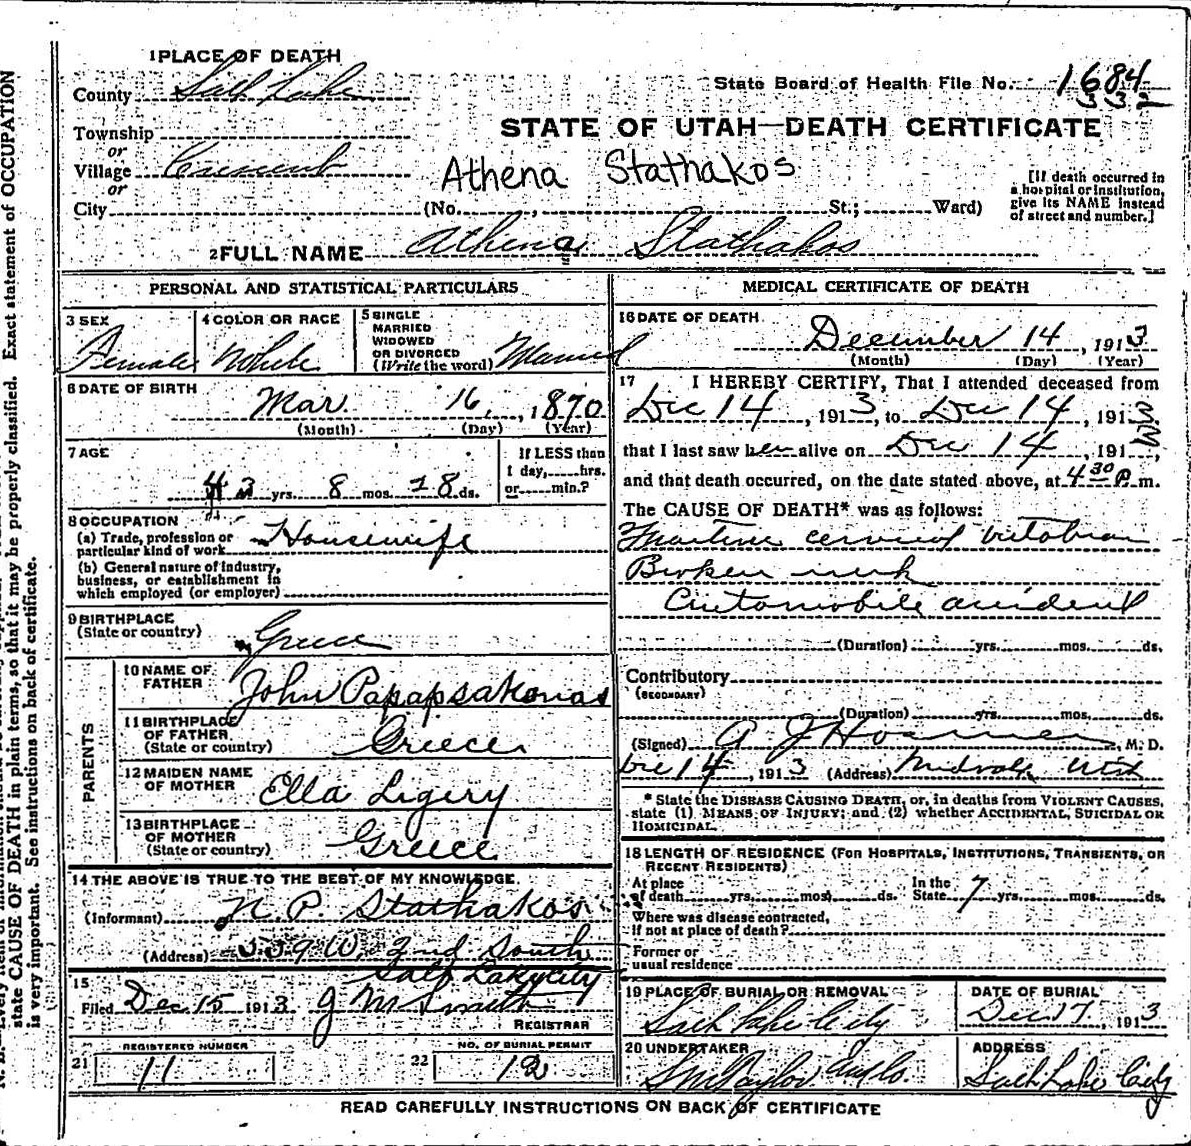 1 PLACE OF DEATH
County Salt Lake
State Board of Health File No. 1684
332
Township
or
Village Crescent
or
City
STATE OF UTAH—DEATH CERTIFICATE
Athena Stathakos
(No. , St.; Ward)
[If death occurred in a hospital or institution, give its NAME instead of street and number.]
2 FULL NAME Athena Stathakos
PERSONAL AND STATISTICAL PARTICULARS
3 SEX
Female
4 COLOR OR RACE
White
5 SINGLE
MARRIED
WIDOWED
OR DIVORCED
(Write the word) Married
6 DATE OF BIRTH
Mar. 16, 1870
(Month) (Day) (Year)
7 AGE
43 yrs. 8 mos. 28 ds.
If LESS than
1 day, hrs.
or min.?
8 OCCUPATION
(a) Trade, profession or
particular kind of work Housewife
(b) General nature of industry,
business, or establishment in
which employed (or employer)
9 BIRTHPLACE
(State or country) Greece
PARENTS
10 NAME OF
FATHER John Papapsakonas
11 BIRTHPLACE
OF FATHER
(State or country) Greece
12 MAIDEN NAME
OF MOTHER Ella Ligiry
13 BIRTHPLACE
OF MOTHER
(State or country) Greece
14 THE ABOVE IS TRUE TO THE BEST OF MY KNOWLEDGE.
(Informant) N. P. Stathakos
(Address) 539 W. 2nd South
Salt Lake City
15
Filed Dec. 15 1913 J M Smith
REGISTRAR
REGISTERED NUMBER
21 11
NO. OF BURIAL PERMIT
22 12
MEDICAL CERTIFICATE OF DEATH
16 DATE OF DEATH
December 14, 1913
(Month) (Day) (Year)
17 I HEREBY CERTIFY, That I attended deceased from
Dec 14, 1913, to Dec 14, 1913
that I last saw her alive on Dec 14, 191 ,
and that death occurred, on the date stated above, at 4 30 P m.
The CAUSE OF DEATH* was as follows:
Fracture cervical
Broken neck
Automobile accident
(Duration) yrs. mos. ds.
Contributory
(SECONDARY)
(Duration) yrs. mos. ds.
(Signed) A J Hosmer, M. D.
Dec 14, 1913 (Address) Midvale Utah
* State the DISEASE CAUSING DEATH, or, in deaths from VIOLENT CAUSES,
state (1) MEANS OF INJURY; and (2) whether ACCIDENTAL, SUICIDAL OR
HOMICIDAL.
18 LENGTH OF RESIDENCE (FOR HOSPITALS, INSTITUTIONS, TRANSIENTS, OR
RECENT RESIDENTS)
At place
of death yrs. mos. ds. In the
State 7 yrs. mos. ds.
Where was disease contracted,
If not at place of death?
Former or
usual residence
19 PLACE OF BURIAL OR REMOVAL
Salt Lake City
DATE OF BURIAL
Dec 17, 1913
20 UNDERTAKER
S M Taylor & Co.
ADDRESS
Salt Lake City
READ CAREFULLY INSTRUCTIONS ON BACK OF CERTIFICATE
state CAUSE OF DEATH in plain terms, so that it may be properly classified. Exact statement of OCCUPATION
is very important. See instructions on back of certificate.